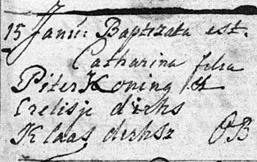 15 Janu: Baptizata est.
Catharina filia
Piter Koning et
Crelisje dirks
Klaas derksz OB